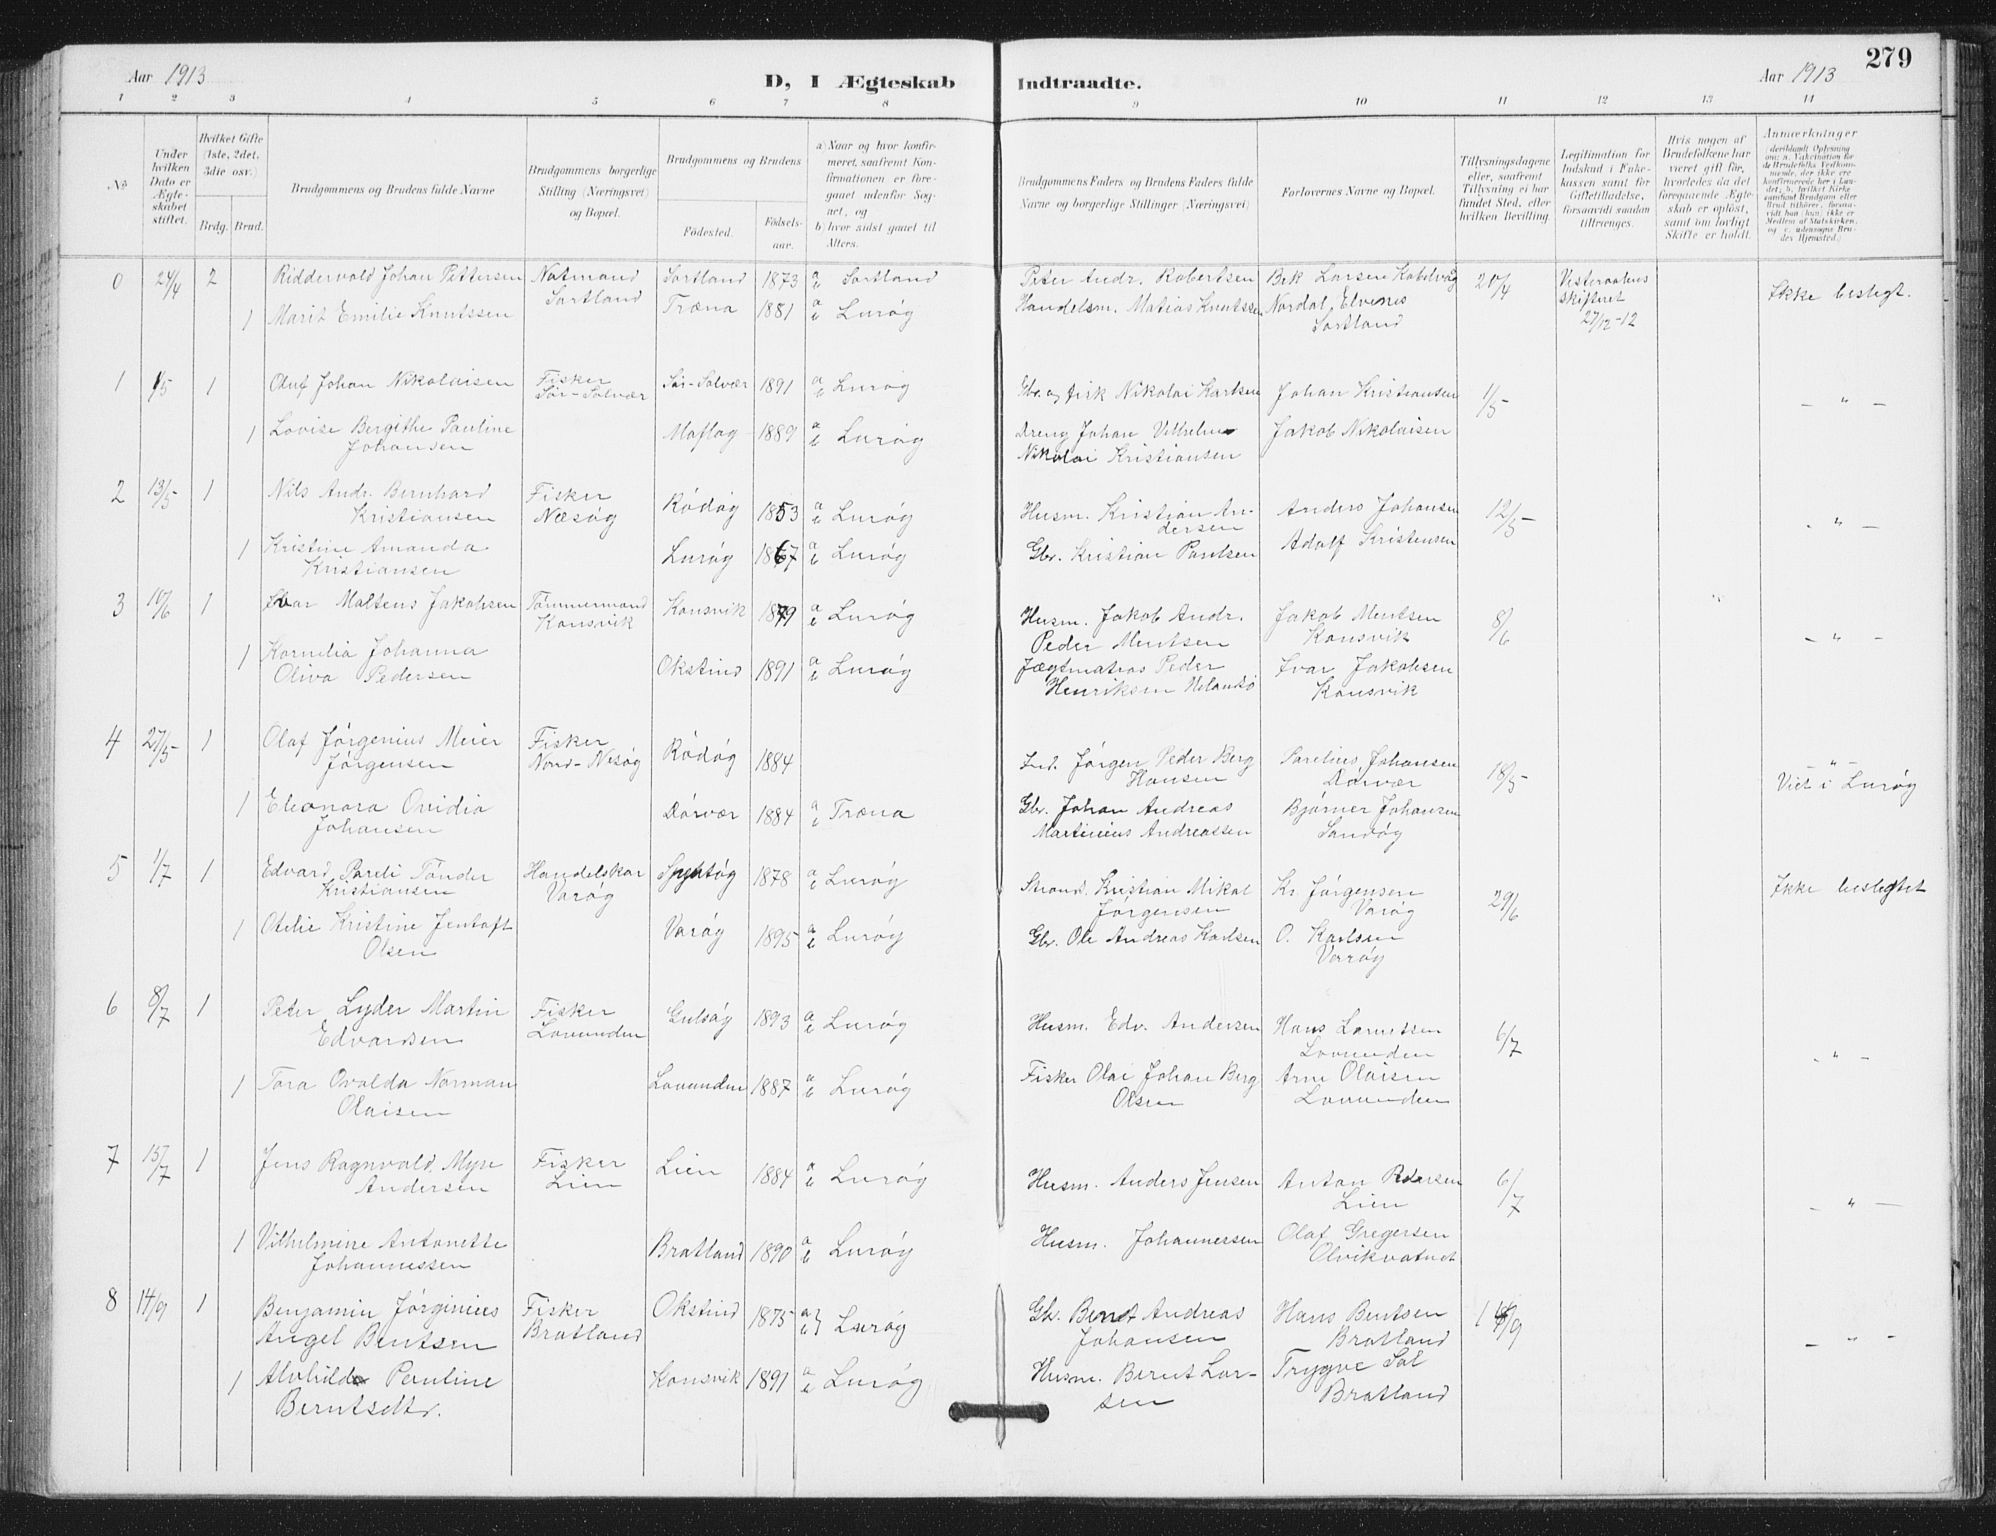 279
Aar 1913
D, I Ægteskab Indtraadte.
Aar 1913
1 2 3 4 5 6 7 8 9 10 11 12 13 14
No
Under hvilken Dato er Ægteskabet stiftet.
Hvilket Gifte (1ste, 2det, 3die osv.)
Brdg. Brud.
Brudgommens og Brudens fulde Navne
Brudgommens borgerlige Stilling (Næringsvei) og Bopæl.
Brudgommens og Brudens
Fødested.
Fødselsaar.
a) Naar og hvor konfirmeret, saafremt Konfirmationen er foregaaet udenfor Sognet, og
b) hvor sidst gaaet til Alters.
Brudgommens Faders og Brudens Faders fulde Navne og borgerlige Stillinger (Næringsvei)
Forlovernes Navne og Bopæl.
Tillysningsdagene eller, saafremt Tillysning ei har fundet Sted, efter hvilken Bevilling.
Legitimation for Indskud i Enkekassen samt for Giftetilladelse, forsaavidt saadan tiltrænges.
Hvis nogen af Brudefolkene har været gift før, hvorledes da det foregaaende Ægteskab er opløst, samt om lovligt Skifte er holdt.
Anmærkninger
0 24/4 2 Riddervold Johan Pettersen Notmand Sortland 1873 a b Sortland Peter Andr. Robertsen Bek Larsen Kabelvåg 20/4 Vesteraalens Ikke beslegt.
Sortland skifteret
1 Marit Emilie Knutssen Træna 1881 a b Lurøy Handelsm. Matias Knutssen Nordal Elvenes 27/12-12
Sortland
1 1/5 1 Oluf Johan Nikolaisen Fisker Sør-Solvær 1891 a b Lurøy Gbr. og fisk Nikolai Karlsen Johan Kristiansen 1/5 — " —
Sør-Solvær
1 Lovise Bergithe Pauline Moflag 1889 a b Lurøy Dreng Johan Vilhelm Jakob Nikolaisen
Johansen Nikolai Kristiansen
2 13/5 1 Nils Andr. Bernhard Fisker Rödöy 1853 a b Lurøy Husm. Kristian An- Anders Johansen 12/5 - " —
Kristiansen Næsøy dersen
1 Kristine Amanda Lurøy 1867 a b Lurøy Gbr. Kristian Paulsen Adolf Kristensen
Kristiansen
3 10/6 1 Ivar Maltens Jakobsen Tömmermand Konsvik 1879 a b Lurøy Husm. Jakob Andr. Jakob Mentsen 8/6 — " —
Konsvik Peder Mentsen Konsvik
1 Kornelia Johanna Okstind 1891 a b Lurøy Jægtmatros Peder Ivar Jakobsen
Oliva Pedersen Henriksen Konsvik
4 27/5 1 Olaf Jörgenius Meier Fisker Rödöy 1884 Ind. Jörgen Peder Berg Parelius Johansen 18/5 — " —
Jörgensen Nord-Nesøy Hansen Dörvær Viet i Lurøy
1 Eleonora Ovidia Dörvær 1884 a b Træna Gbr. Johan Andreas Bjørner Johansen
Johansen Martinius Andreassen Sandøy
5 1/7 1 Edvard Pareli Tönder Handelskar 1878 a b Lurøy Strand. Kristian Mikal Kr. Jörgensen 29/6 Ikke beslegtet
Kristiansen Varøy Jörgensen Varøy
1 Otelie Kristine Jentoft Varøy 1895 a b Lurøy Gbr. Ole Andreas Karlsen O. Karlsen
Olsen Varøy
6 8/7 1 Peter Lyder Martin Fisker Gulsøy 1893 a b Lurøy Husm. Edv. Andersen Hans Larsen 6/7 - " —
Edvardsen Lovunden Lovunden
1 Tora Ovalda Norman Lovunden 1887 a b Lurøy Fisker Olai Johan Berg Arne Olaisen
Olaisen Olsen Lovunden
7 15/7 1 Jens Ragnvald Myre Fisker Lien 1884 a b Lurøy Husm. Anders Jensen Anton Pedersen 6/7 — " —
Andersen Lien Lien
1 Vilhelmine Antonette Bratland 1890 a b Lurøy Husm. Johannessen Olaf Gregersen
Johannessen Olvikvatnet
8 14/9 1 Benjamin Jørginius Fisker Okstind 1875 a b Lurøy Gbr. Bendt Andreas Hans Bentsen 14/9 — " —
Angel Bentsen Bratland Johansen Bratland
1 Alvhilde Pauline Konsvik 1891 a b Lurøy Husm. Bernt Lar- Trygve Sal
Berntsdtr. sen Bratland